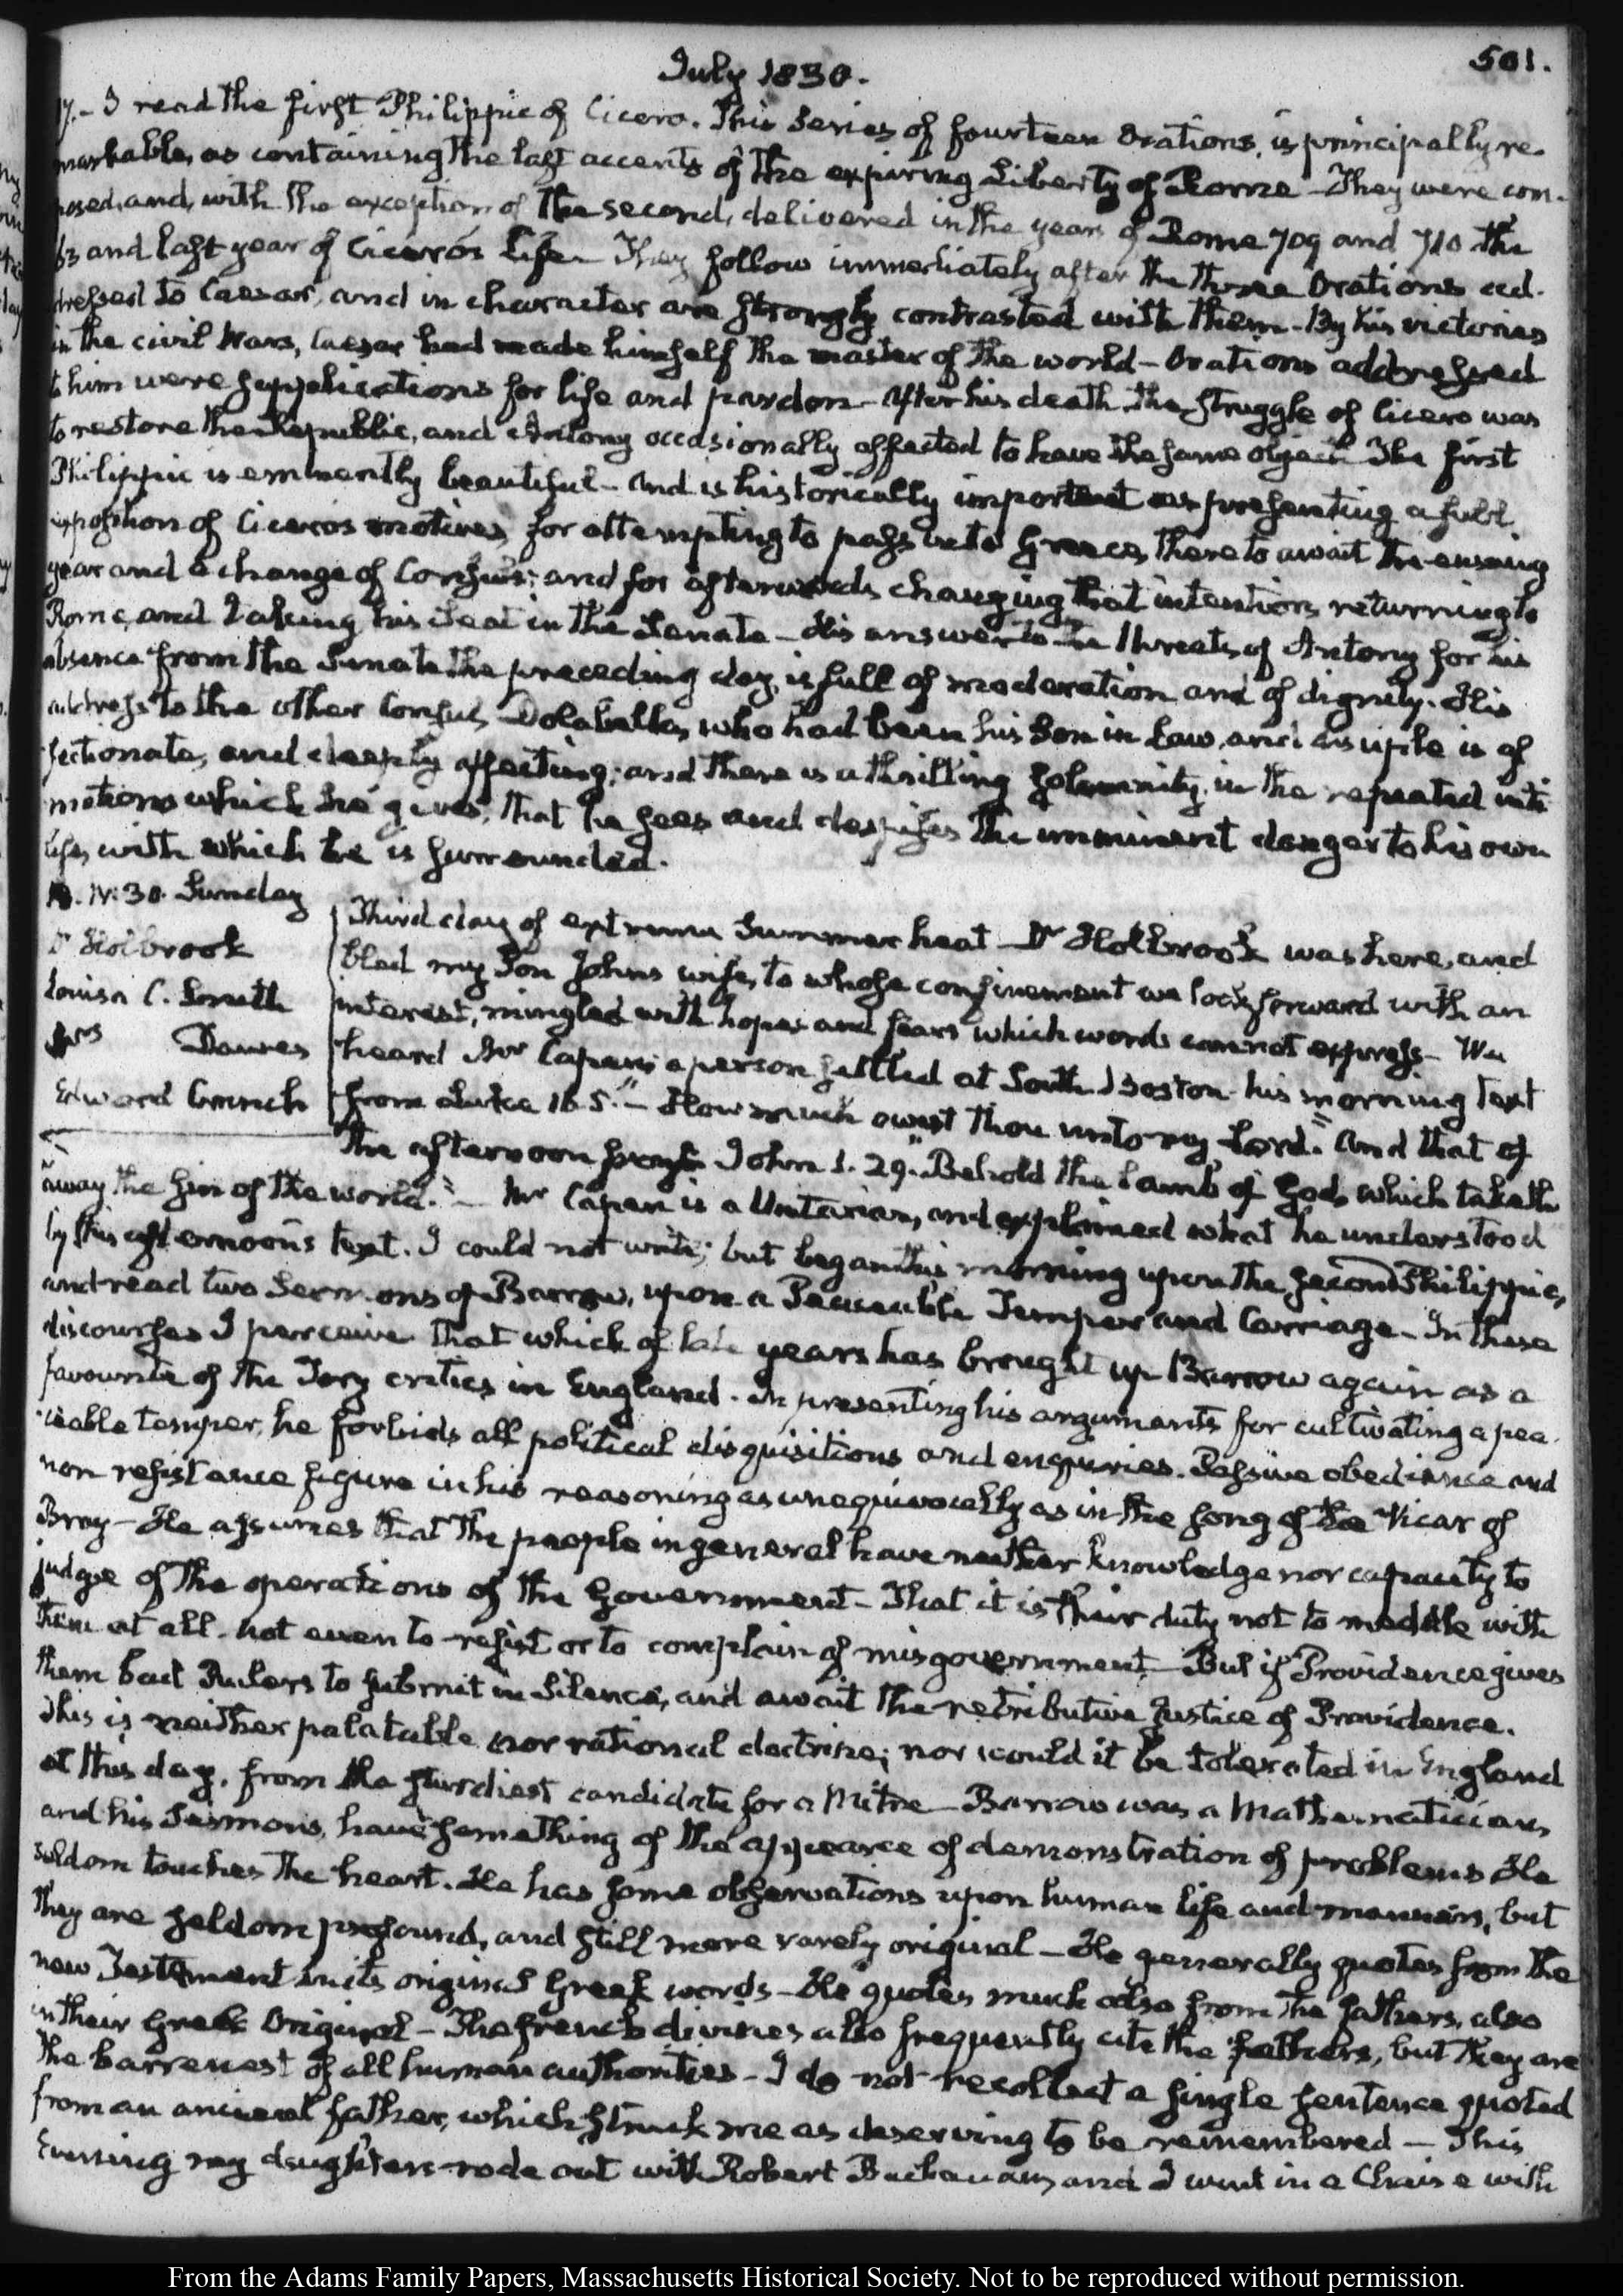 July 1830.
501.
17.- I read the first Philippic of Cicero. This series of fourteen Orations, is principally re-
markable, as containing the last accents of the expiring Liberty of Rome - They were com-
posed, and, with the exception of the second, delivered in the years of Rome 709 and 710 the
63 and last year of Cicero's life - They follow immediately after the three Orations ad-
dressed to Caesar, and in character are strongly contrasted with them - By his victories
in the civil Wars, Caesar had made himself the master of the world - Orations addressed
to him were supplications for life and pardon - After his death the struggle of Cicero was
to restore the Republic, and Antony occasionally affected to have the same object The first
Philippic is eminently beautiful - And is historically important as presenting a full
exposition of Ciceros motives for attempting to pass into Greece, there to await the ensuing
year and a change of Consuls; and for afterwards changing that intention, returning to
Rome, and taking his seat in the Senate - His answer to the threats of Antony for his
absence from the Senate the preceding day, is full of moderation and of dignity. His
address to the other Consul, Dolabella, who had been his Son in Law, and disciple is af
fectionate, and deeply affecting; and there is a thrilling solemnity, in the repeated inti
mations which he gives, that he sees and despises the imminent danger to his own
life, with which he is surrounded.
18. IV:30. Sunday
Dr Holbrook
Louisa C. Smith
Mrs Dawes
Edward Cranch
Third day of extreme Summer heat - Dr Holbrook was here, and
bled my Son Johns wife, to whose confinement we look forward with an
interest, mingled with hopes and fears which words cannot express - We
heard Mr Capen; a person settled at South Boston - his morning text
from Luke 16. 5. "- How much owest thou unto my Lord." And that of
the afternoon from John 1. 29. "Behold the Lamb of God, which taketh
away the sin of the world." - Mr Capen is a Unitarian, and explained what he understood
by this afternoon's text. I could not write; but began this morning upon the second Philippic,
and read two Sermons of Barrow, upon a Peaceable Temper and Carriage - In these
discourses I perceive that which of late years has brought up Barrow again as a
favourite of the Tory critics in England. In presenting his arguments for cultivating a pea-
ceable temper, he forbids all political disquisitions and enquiries. Passive obedience and
non resistance figure in his reasoning as unequivocally as in the song of the Vicar of
Bray - He assumes that the people in general have neither knowledge nor capacity to
judge of the operations of the Government - That it is their duty not to meddle with
them at all - not even to resist or to complain of misgovernment - But if Providence gives
them bad Rulers to submit in Silence, and await the retributive justice of Providence.
This is neither palatable nor rational doctrine; nor would it be tolerated in England
at this day, from the sturdiest candidate for a Mitre - Barrow was a Mathematician,
and his Sermons, have something of the appearce of demonstration of problems He
seldom touches the heart. He has some observations upon human life and manners, but
they are seldom profound, and still more rarely original - He generally quotes from the
new Testament in its original Greek words - He quotes much also from the fathers, also
in their Greek Original - The french divines also frequently cite the fathers, but they are
the barrenest of all human authorities - I do not recollect a single sentence quoted
from an ancient father, which struck me as deserving to be remembered - This
Evening my daughters rode out with Robert Buchanan, and I went in a Chaise with
From the Adams Family Papers, Massachusetts Historical Society. Not to be reproduced without permission.